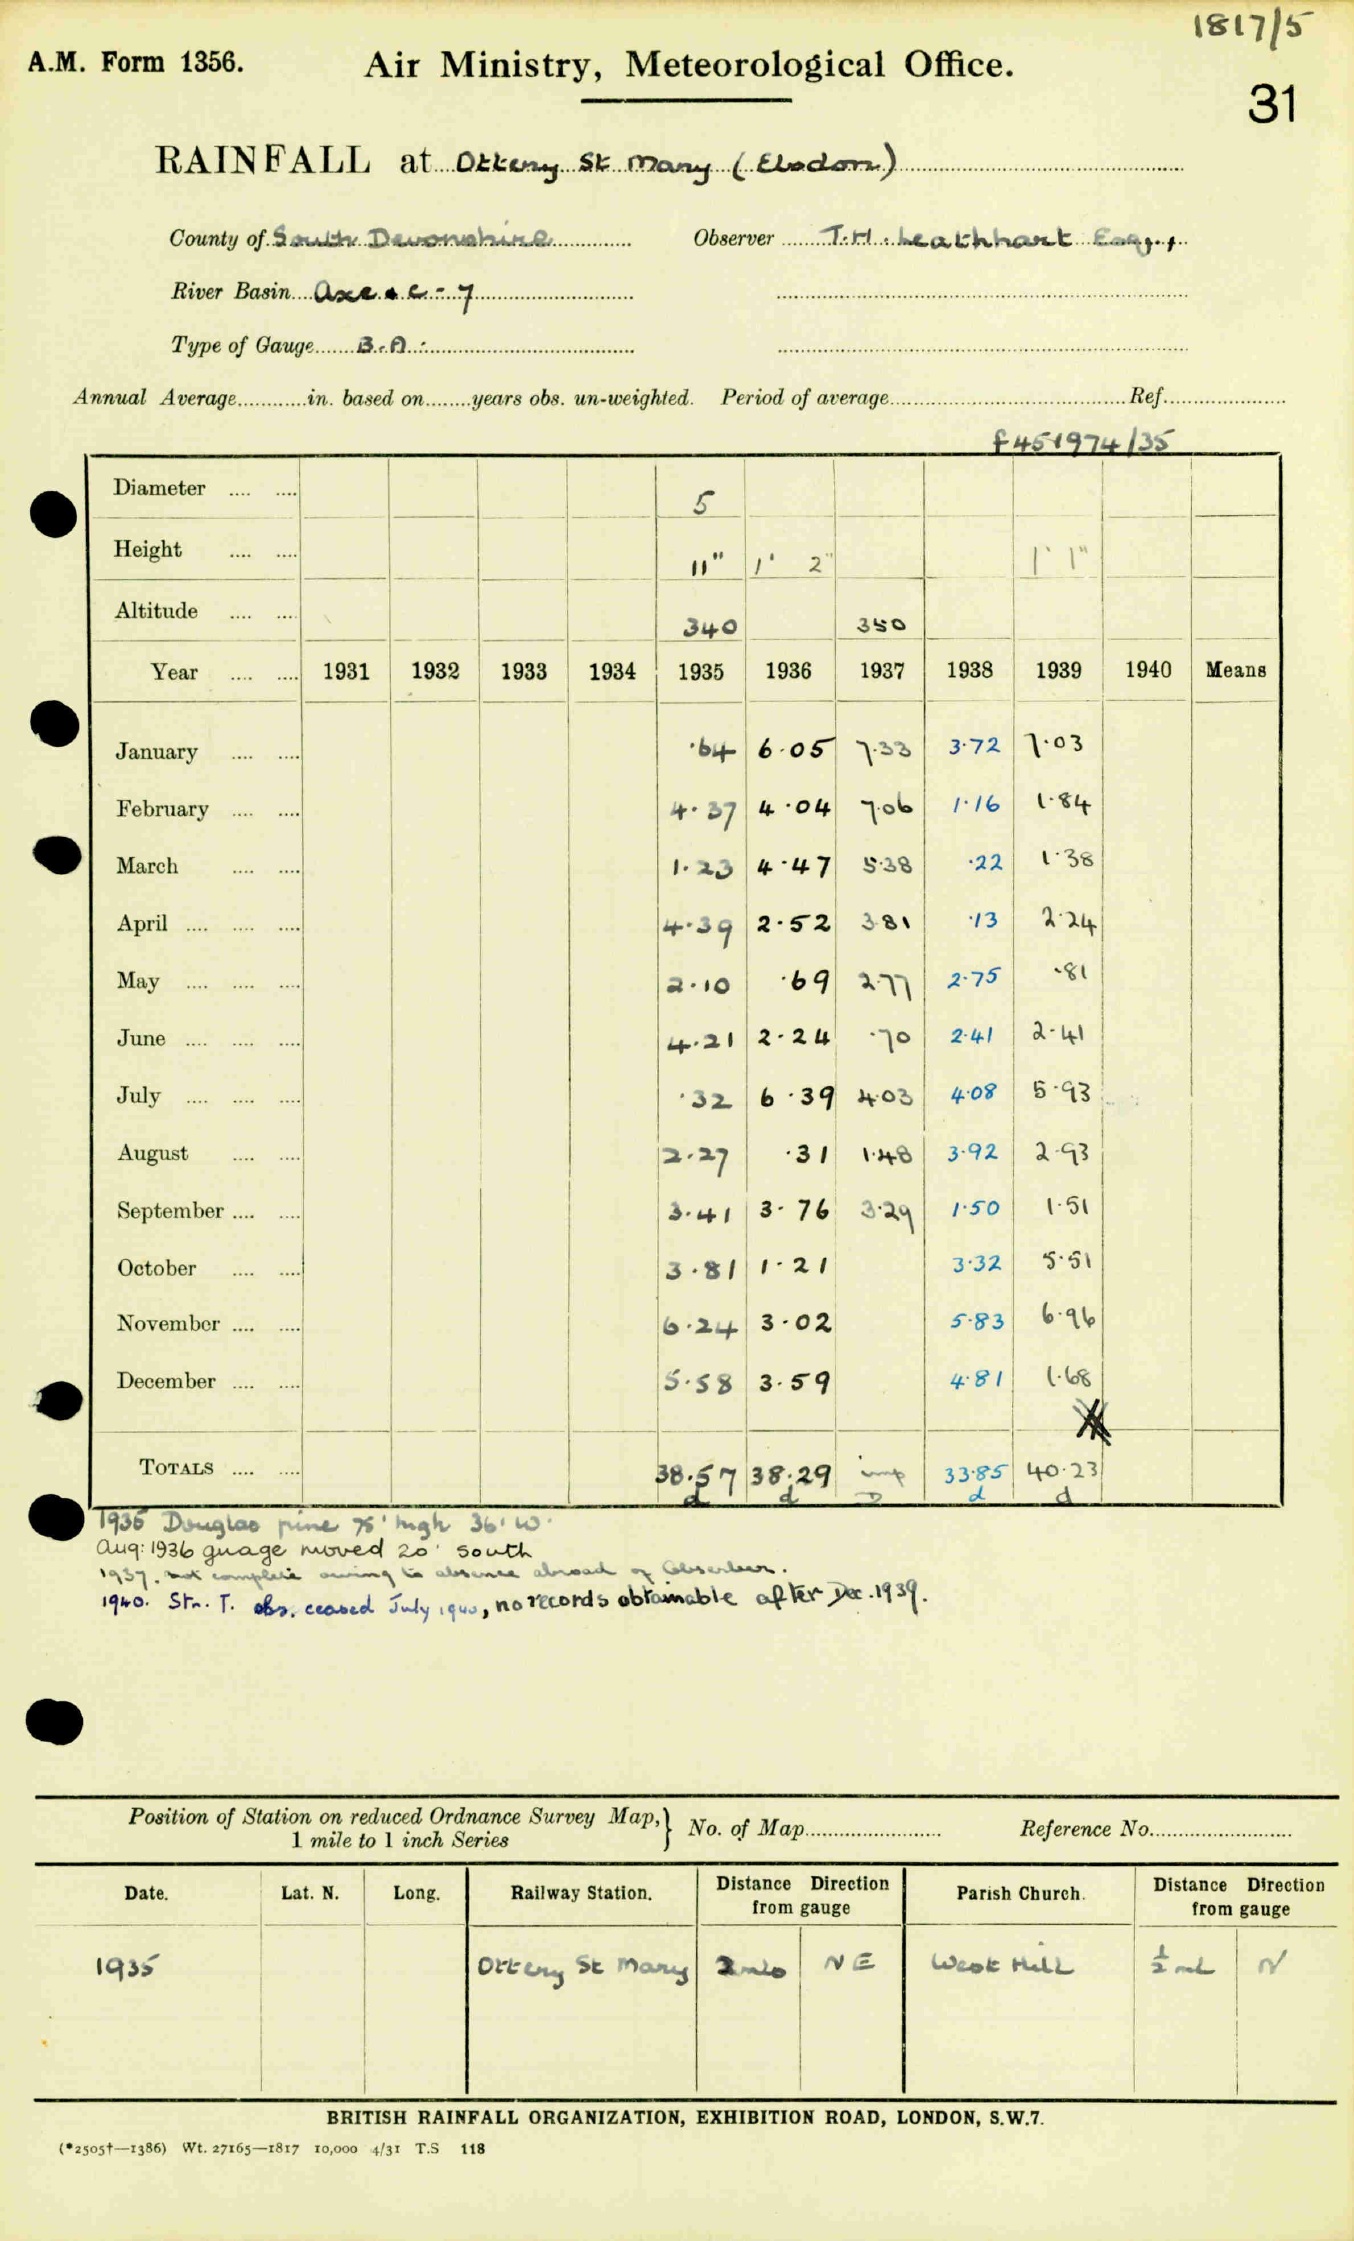 1817/5
A.M. Form 1356. Air Ministry, Meteorological Office.
31
RAINFALL at Ottery St Mary (Ebdon)
County of South Devonshire Observer T.H. Leathhart Esq.,
River Basin Axe &c - 7
Type of Gauge B.A.
Annual Average in. based on years obs. un-weighted. Period of average Ref.
f451974/35
Diameter 5
Height 11" 1' 2" 1' 1"
Altitude 340 350
Year 1931 1932 1933 1934 1935 1936 1937 1938 1939 1940 Means
January .64 6.05 7.33 3.72 7.03
February 4.37 4.04 7.06 1.16 1.84
March 1.23 4.47 5.38 .22 1.38
April 4.39 2.52 3.81 .13 2.24
May 2.10 .69 2.77 2.75 .81
June 4.21 2.24 .70 2.41 2.41
July .32 6.39 4.03 4.08 5.93
August 2.27 .31 1.48 3.92 2.93
September 3.41 3.76 3.29 1.50 1.51
October 3.81 1.21 3.32 5.51
November 6.24 3.02 5.83 6.96
December 5.58 3.59 4.81 1.68
TOTALS 38.57 38.29 imp 33.85 40.23
d d D d d
1935 Douglas pine 75' high 36' W.
Aug: 1936 guage moved 20' south
1937. not complete owing to absence abroad of Observer.
1940. Stn. T. obs. ceased July 1940, no records obtainable after Dec. 1939.
Position of Station on reduced Ordnance Survey Map,} No. of Map Reference No.
1 mile to 1 inch Series
Date. Lat. N. Long. Railway Station. Distance Direction from gauge Parish Church. Distance Direction from gauge
1935 Ottery St Mary 2 mls NE West Hill ½ ml N
BRITISH RAINFALL ORGANIZATION, EXHIBITION ROAD, LONDON, S.W.7.
(*2505†—1386) Wt. 27165—1817 10,000 4/31 T.S 118